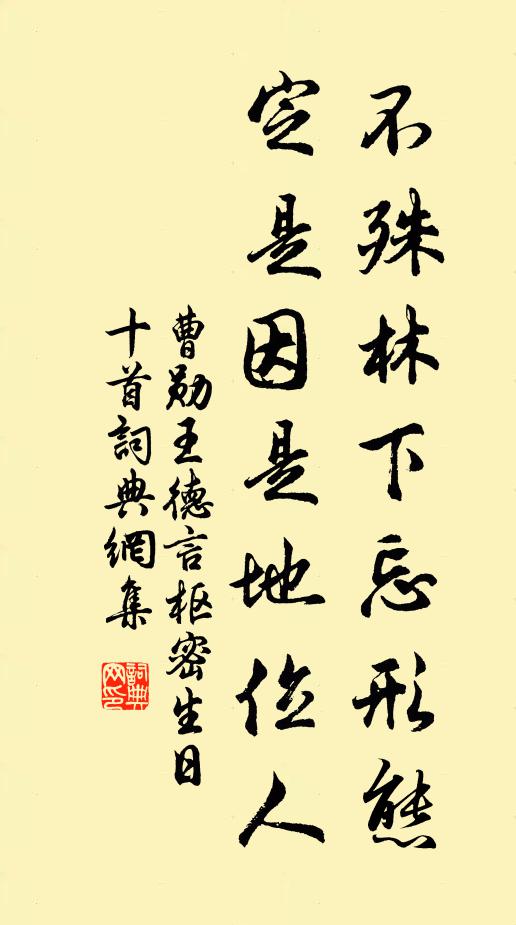 不殊林下忘形態
定是因是地位人
曹勛王德言枢密生日
十首詞典網集
詞典网印